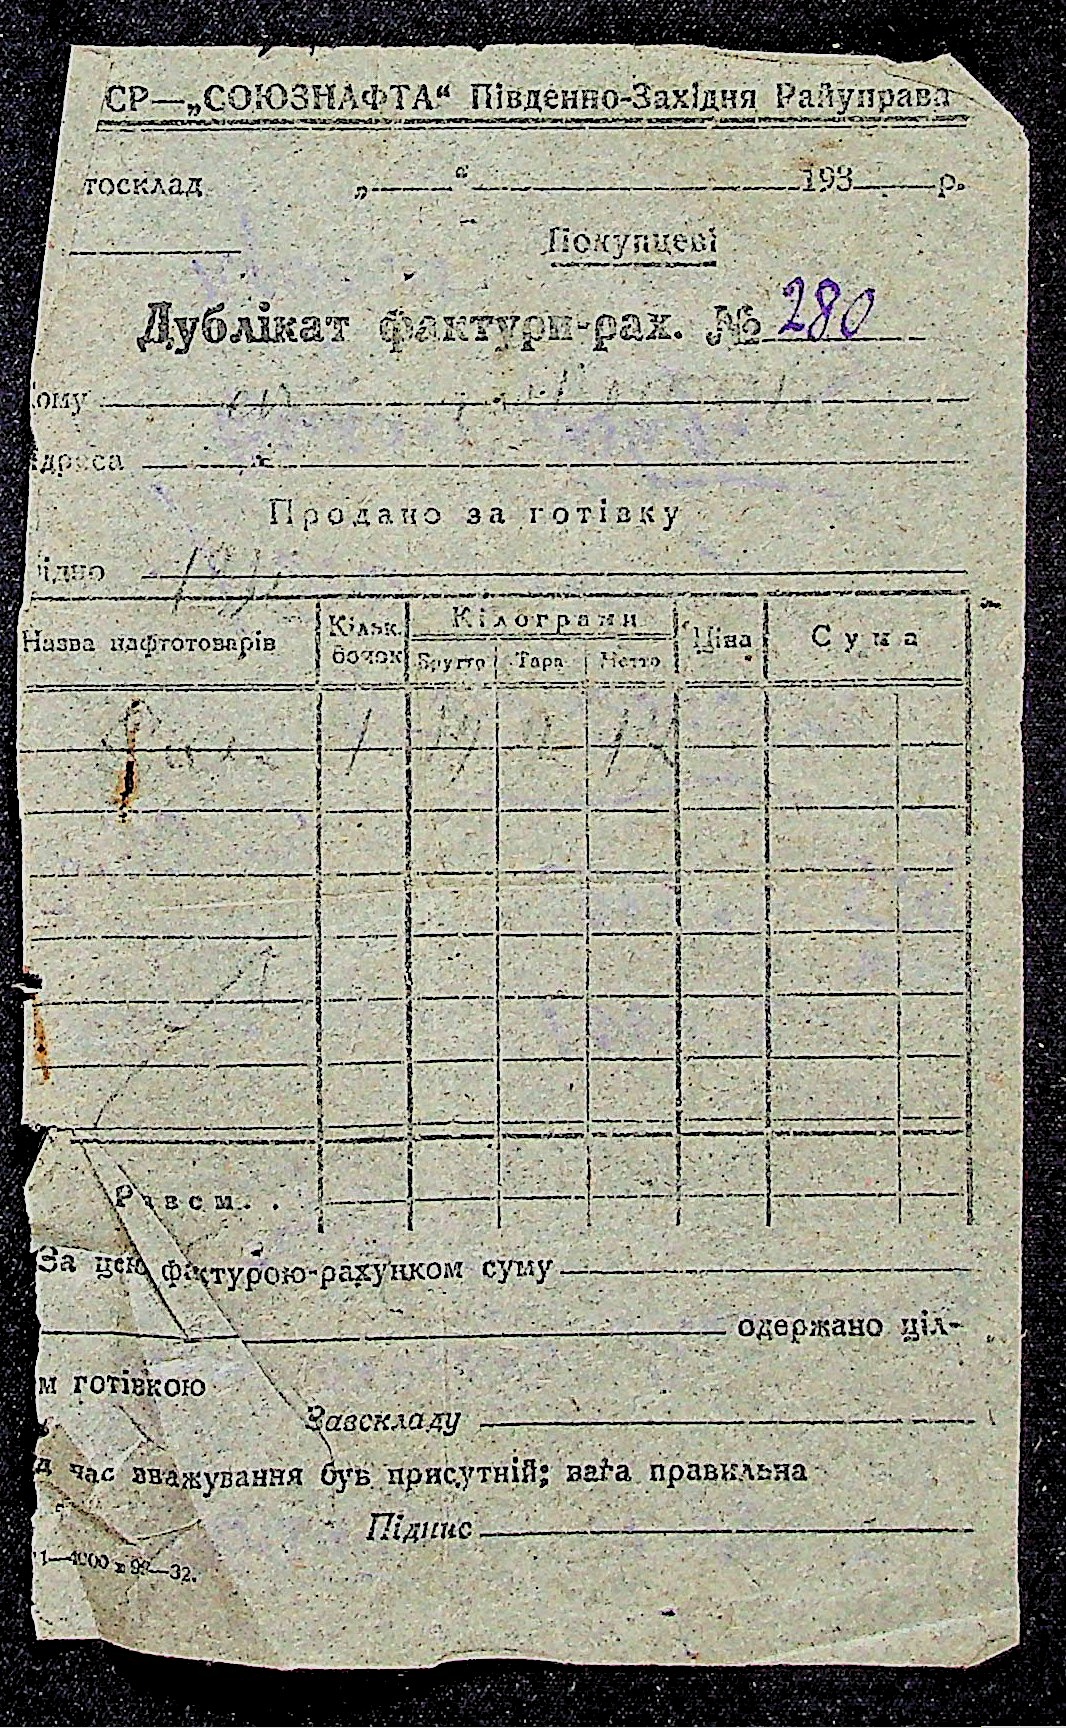 СР—„СОЮЗНАФТА“ Південно-Західня Райуправа
тосклад „ “ 193 р.
Покупцеві
Дублікат фактури-рах. № 280
ому
дреса
Продано за готівку
ідно
Назва нафтотоварів Кільк. бочок Кілограми Брутто Тара Нетто Ціна Сума
Разом . .
За цею фактурою-рахунком суму
одержано ціл-
м готівкою
Завскладу
д час вважування був присутній; вага правильна
Підпис